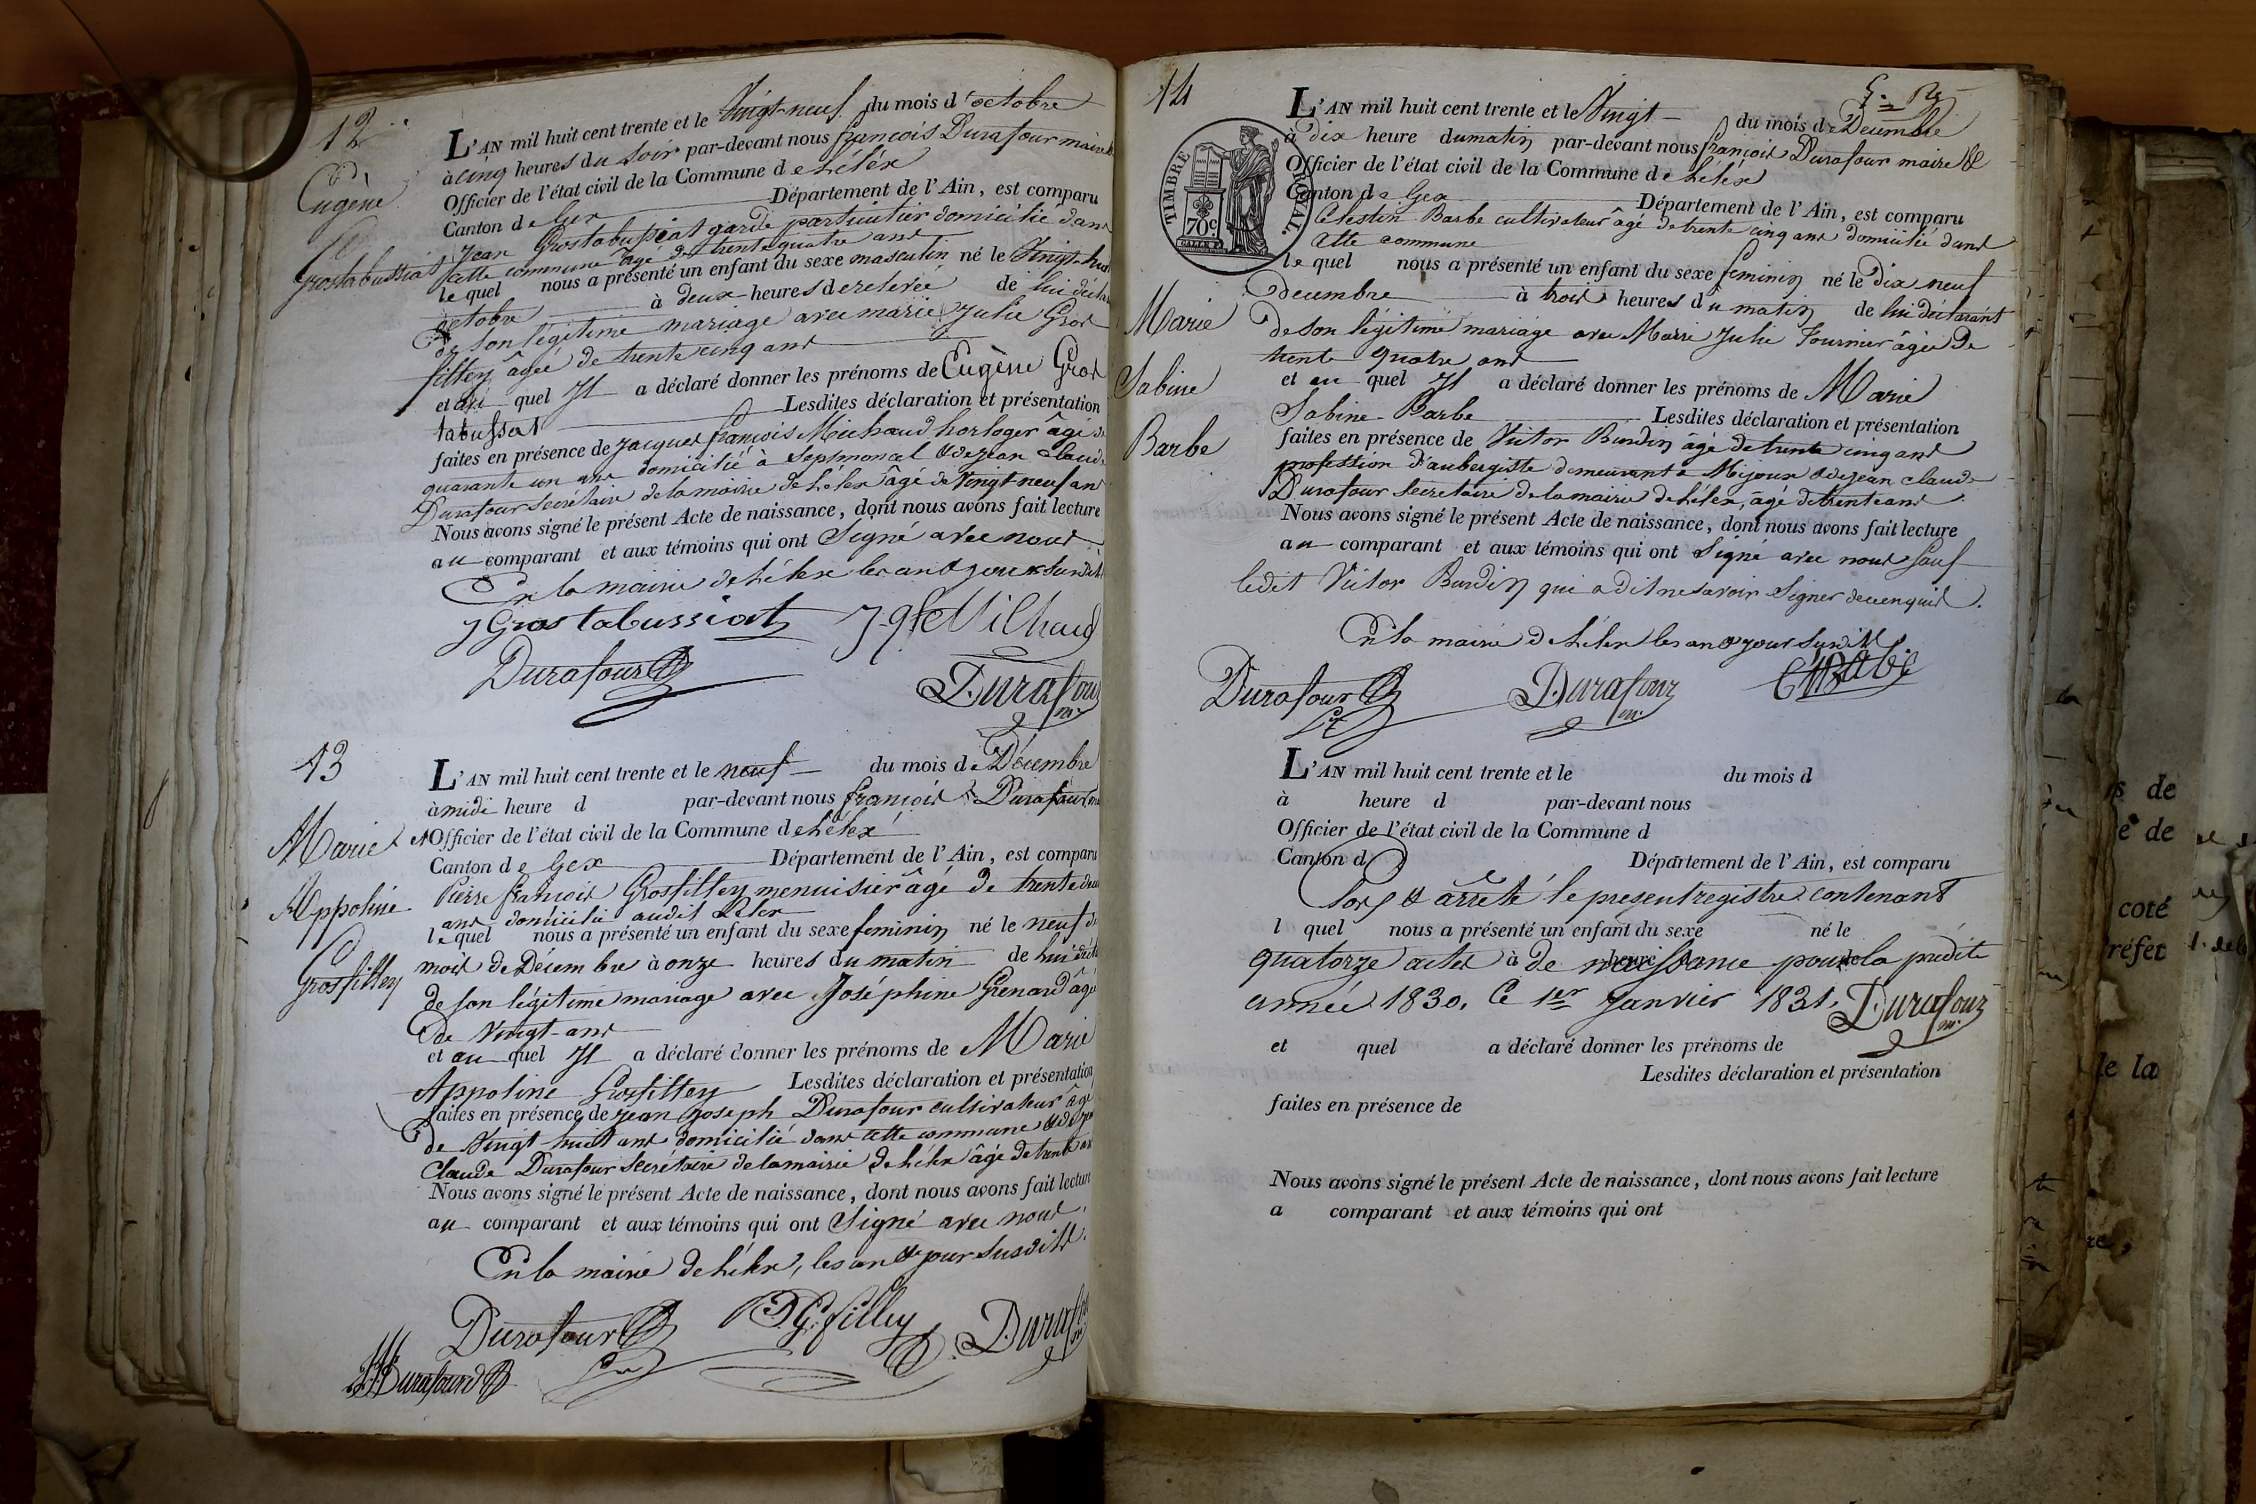 12
Eugène
Grostabussiat
L'AN mil huit cent trente et le Vingt-neuf du mois d'octobre
à cinq heures du soir par-devant nous françois Durafour maire
Officier de l'état civil de la Commune de Lélex
Canton de Gex Département de l'Ain, est comparu
Jean Grostabussiat garde particulier domicilié dans
cette commune âgé de trente quatre ans
lequel nous a présenté un enfant du sexe masculin né le Vingt-huit
octobre à deux heures de relevée de lui déclarant
de son légitime mariage avec marie Julie Gros
filley âgée de trente cinq ans
et au quel Il a déclaré donner les prénoms de Eugène Gros
tabussiat Lesdites déclaration et présentation
faites en présence de Jacques françois Michaud horloger âgé de
quarante un ans domicilié à Septmoncel & de Jean Claude
Durafour secrétaire de la mairie de Lélex âgé de Vingt-neuf ans
Nous avons signé le présent Acte de naissance, dont nous avons fait lecture
au comparant et aux témoins qui ont Signé avec nous
En la mairie de Lélex les an & jour susdits
J Grostabussiat J. f Michaud
Durafour Durafour m.
13
Marie
Appoline
Grosfilley
L'AN mil huit cent trente et le neuf du mois de Décembre
à midi heure d par-devant nous françois Durafour
Officier de l'état civil de la Commune de Lélex
Canton de Gex Département de l'Ain, est comparu
Pierre françois Grosfilley menuisier âgé de trente deux
ans domicilié audit Lélex
lequel nous a présenté un enfant du sexe feminin né le neuf du
mois de Décembre à onze heures du matin de lui déclarant
de son légitime mariage avec Joséphine Grenard âgée
de Vingt-ans
et au quel Il a déclaré donner les prénoms de Marie
Appoline Grosfilley Lesdites déclaration et présentation
faites en présence de Jean Joseph Durafour cultivateur âgé
de Vingt-huit ans domicilié dans cette commune & de Jean
Claude Durafour Secrétaire de la mairie de Lélex âgé de trente ans
Nous avons signé le présent Acte de naissance, dont nous avons fait lecture
au comparant et aux témoins qui ont Signé avec nous.
En la mairie de Lélex, les an & jour susdits.
Durafour P. f. G. filley Durafour
Durafourd
14
Marie
Sabine
Barbe
TIMBRE ROYAL.
70c.
L'AN mil huit cent trente et le Vingt du mois de Decembre
à dix heure du matin par-devant nous françois Durafour maire &
Officier de l'état civil de la Commune de Lélex
Canton de Gex Département de l'Ain, est comparu
Célestin Barbe cultivateur âgé de trente cinq ans domicilié dans
cette commune
lequel nous a présenté un enfant du sexe feminin né le dix neuf
decembre à trois heures du matin de lui déclarant
de son légitime mariage avec Marie Julie Fournier âgée de
trente quatre ans
et au quel Il a déclaré donner les prénoms de Marie
Sabine Barbe Lesdites déclaration et présentation
faites en présence de Victor Burdin âgé de trente cinq ans
profession d'aubergiste demeurant à Mijoux & de Jean Claude
Durafour Secrétaire de la mairie de Lélex, âgé de trente ans
Nous avons signé le présent Acte de naissance, dont nous avons fait lecture
au comparant et aux témoins qui ont Signé avec nous Sauf
ledit Victor Burdin qui a dit ne savoir Signer de ce enquis.
En la mairie de Lélex les an & jour susdits
Durafour Durafour m. C Barbe
L'AN mil huit cent trente et le du mois d
à heure d par-devant nous
Officier de l'état civil de la Commune d
Canton d Département de l'Ain, est comparu
Clos & arrêté le present registre contenant
l quel nous a présenté un enfant du sexe né le
quatorze actes de naissance pour la predite
à heure d de
année 1830. Ce 1er Janvier 1831. Durafour m.
et quel a déclaré donner les prénoms de
Lesdites déclaration et présentation
faites en présence de
Nous avons signé le présent Acte de naissance, dont nous avons fait lecture
a comparant et aux témoins qui ont
de
de
coté
préfet
de la